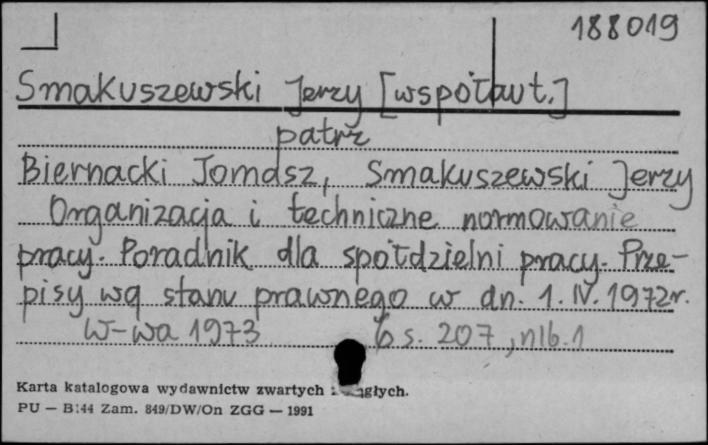 188019
Smakuszewski Jerzy [współaut.]
patrz
Biernacki Tomasz, Smakuszewski Jerzy
Organizacja i techniczne normowanie
pracy. Poradnik dla spółdzielni pracy. Prze-
pisy wg stanu prawnego w dn. 1. IV. 1972r.
W-wa 1973 s. 207, nlb. 1
Karta katalogowa wydawnictw zwartych
PU — B/44 Zam. 849/DW/On ZGG — 1991